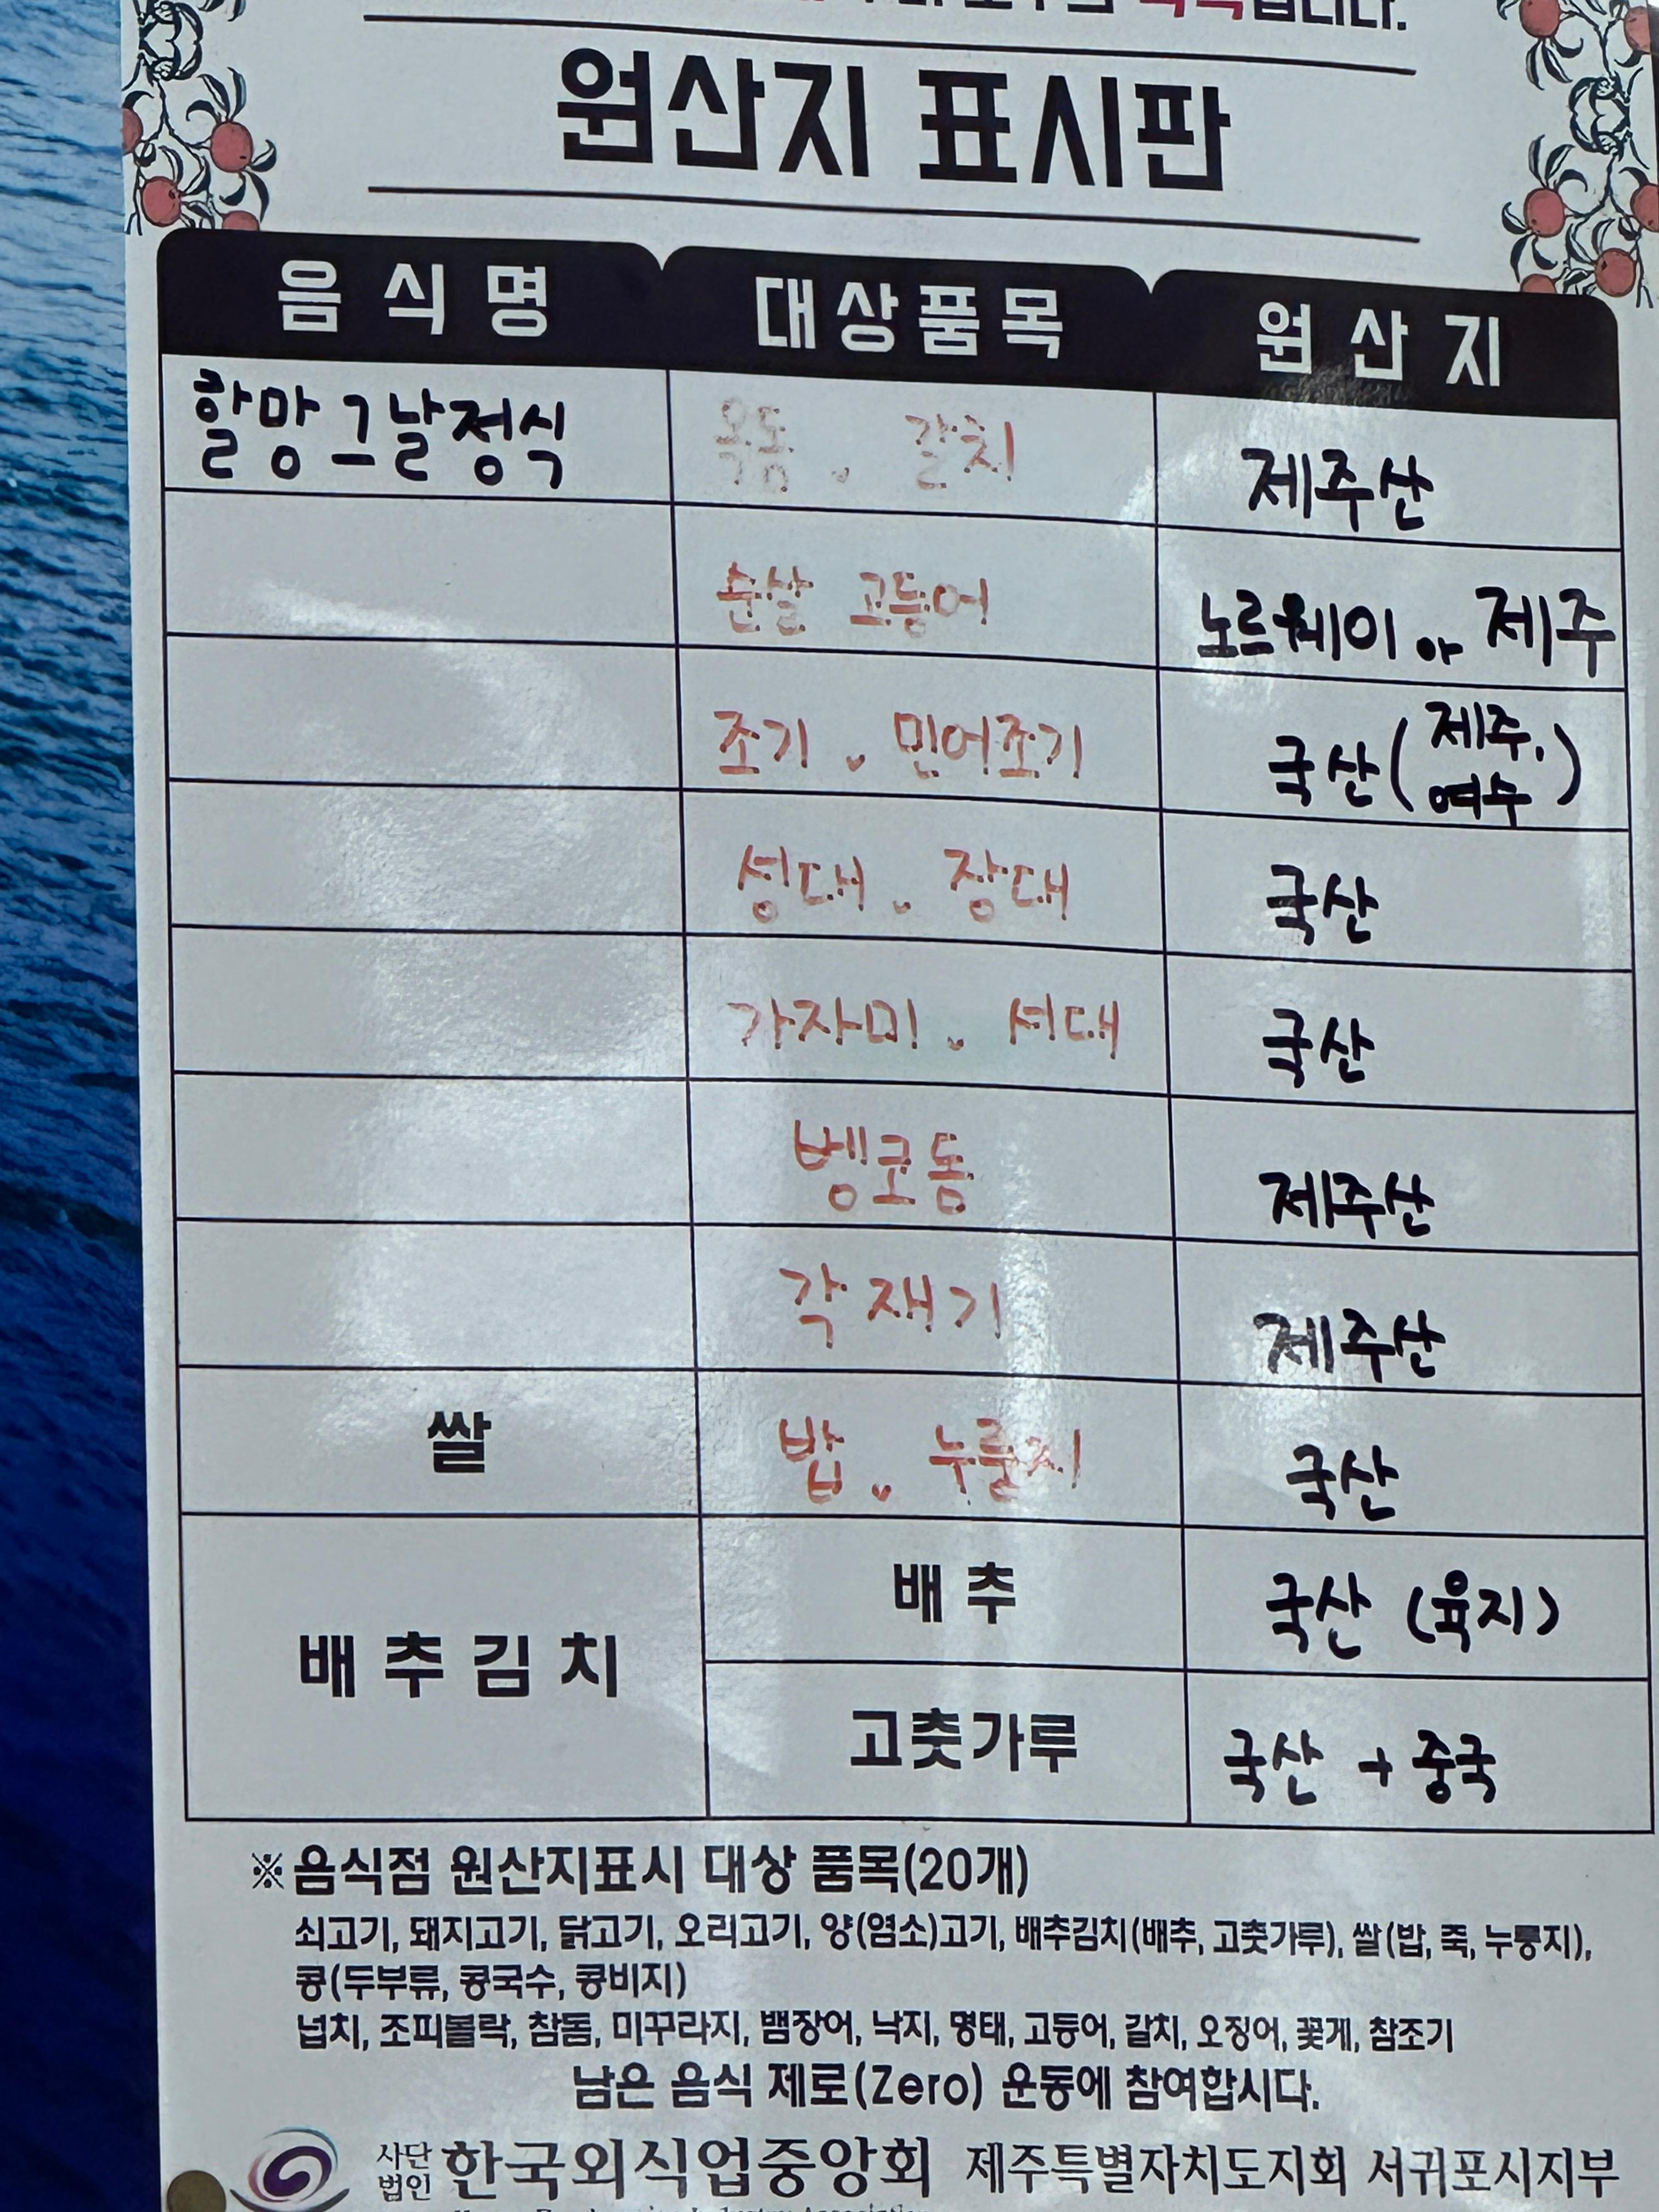 원산지 표시판
음식명 대상품목 원산지
할망그날정식 옥돔, 갈치 제주산
순살 고등어 노르웨이, 제주
조기, 민어조기 국산(제주, 여수)
성대, 장대 국산
가자미, 서대 국산
벵코돔 제주산
각재기 제주산
쌀 밥, 누룽지 국산
배추김치 배추 국산 (육지)
고춧가루 국산 + 중국
※음식점 원산지표시 대상 품목(20개)
쇠고기, 돼지고기, 닭고기, 오리고기, 양(염소)고기, 배추김치(배추, 고춧가루), 쌀(밥, 죽, 누룽지),
콩(두부류, 콩국수, 콩비지)
넙치, 조피볼락, 참돔, 미꾸라지, 뱀장어, 낙지, 명태, 고등어, 갈치, 오징어, 꽃게, 참조기
남은 음식 제로(Zero) 운동에 참여합시다.
사단법인 한국외식업중앙회 제주특별자치도지회 서귀포시지부